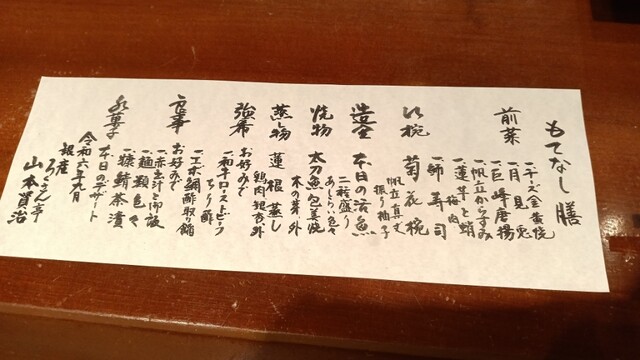 もてなし膳
前菜
一干し金黄焼
一月見兎
一巨峰唐揚
一帆立からすみ
一蓮芋と蛸
梅肉
一師寿司
吸椀
菊花椀
帆立真丈
振り柚子
造里
本日の活魚
二種盛り
あしらい色々
焼物
太刀魚包美焼
木の芽 外
蒸し物
蓮根蒸し
鶏肉 外
強肴
お好みで
一和牛ローストビーフ
ちり酢
一エボ鯛酢取り餡
食事
お好みで
一赤出汁と御飯
一麺類色々
一糠鯖茶漬
水菓子
本日のデザート
令和六年九月
銀座
らん亭
山本賢治